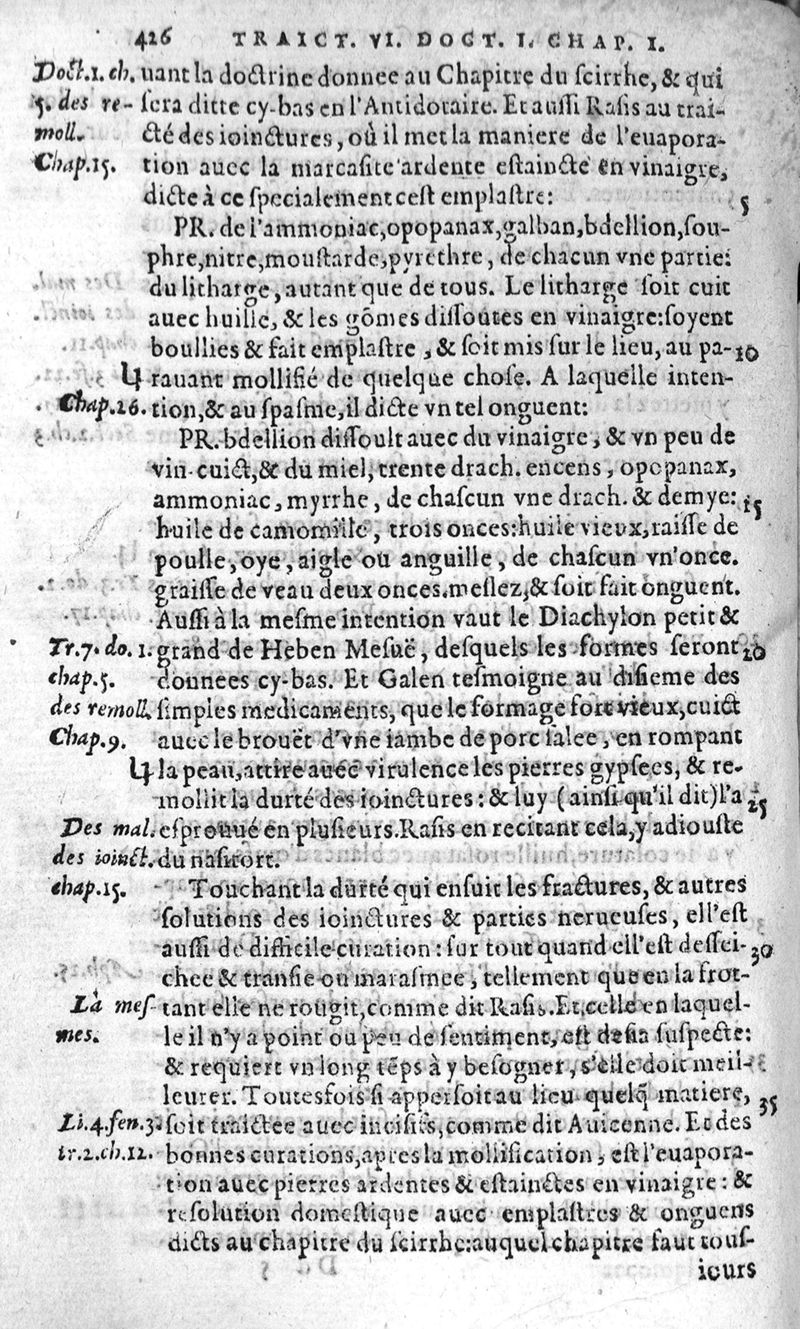 426 TRAICT. VI. DOCT. I. CHAP. I.
Doct.1. ch. uant la doctrine donnee au Chapitre du ſcirrhe, & qui
5. des re- ſera ditte cy-bas en l'Antidotaire. Et auſſi Raſis au trai-
moll. cté des ioinctures, où il met la maniere de l'euapora-
Chap.15. tion auec la marcaſite ardente eſtaincte en vinaigre,
dicte à ce ſpecialement ceſt emplaſtre: 5
PR. de l'ammoniac, opopanax, galban, bdellion, ſou-
phre, nitre, mouſtarde, pyrethre, de chacun vne partie:
du litharge, autant que de tous. Le litharge ſoit cuit
auec huille, & les gõmes diſſoutes en vinaigre: ſoyent
boullies & fait emplaſtre, & ſoit mis ſur le lieu, au pa- 10
rauant mollifié de quelque choſe. A laquelle inten-
Chap.26. tion, & au ſpaſme, il dicte vn tel onguent:
PR. bdellion diſſoult auec du vinaigre, & vn peu de
vin cuict, & du miel, trente drach. encens, opopanax,
ammoniac, myrrhe, de chaſcun vne drach. & demye: 15
huile de camomille, trois onces: huile vieux, raiſſe de
poulle, oye, aigle ou anguille, de chaſcun vn'once.
graiſſe de veau deux onces. meſlez, & ſoit fait onguent.
Auſſi à la meſme intention vaut le Diachylon petit &
Tr.7. do. 1. grand de Heben Meſuë, deſquels les formes ſeront 20
chap.5. donnees cy-bas. Et Galen teſmoigne au diſieme des
des remoll. ſimples medicaments, que le formage fort vieux, cuict
Chap.9. auec le brouët d'vne iambe de porc ſalee, en rompant
la peau, attire auec virulence les pierres gypſees, & re-
mollit la durté des ioinctures: & luy (ainſi qu'il dit) l'a 25
Des mal. eſprouué en pluſieurs. Raſis en recitant cela, y adiouſte
des ioinct. du naſitort.
chap.15. Touchant la durté qui enſuit les fractures, & autres
ſolutions des ioinctures & parties nerueuſes, ell'eſt
auſſi de difficile curation: ſur tout quand ell'eſt deſſei- 30
chee & tranſie ou maraſmee, tellement que en la frot-
La meſ- tant elle ne rougit, comme dit Raſis. Et celle en laquel-
mes. le il n'y a point ou peu de ſentiment, eſt deſia ſuſpecte:
& requiert vn long tẽps à y beſogner, s'elle doit meil-
leurer. Toutesfois ſi apperſoit au lieu quelq̃ matiere, 35
Li.4.fen.3. ſoit traictee auec inciſifs, comme dit Auicenne. Et des
tr.2.ch.12. bonnes curations, apres la mollification, eſt l'euapora-
tion auec pierres ardentes & eſtainctes en vinaigre: &
reſolution domeſtique auec emplaſtres & onguens
dicts au chapitre du ſcirrhe: auquel chapitre faut touſ-
iours